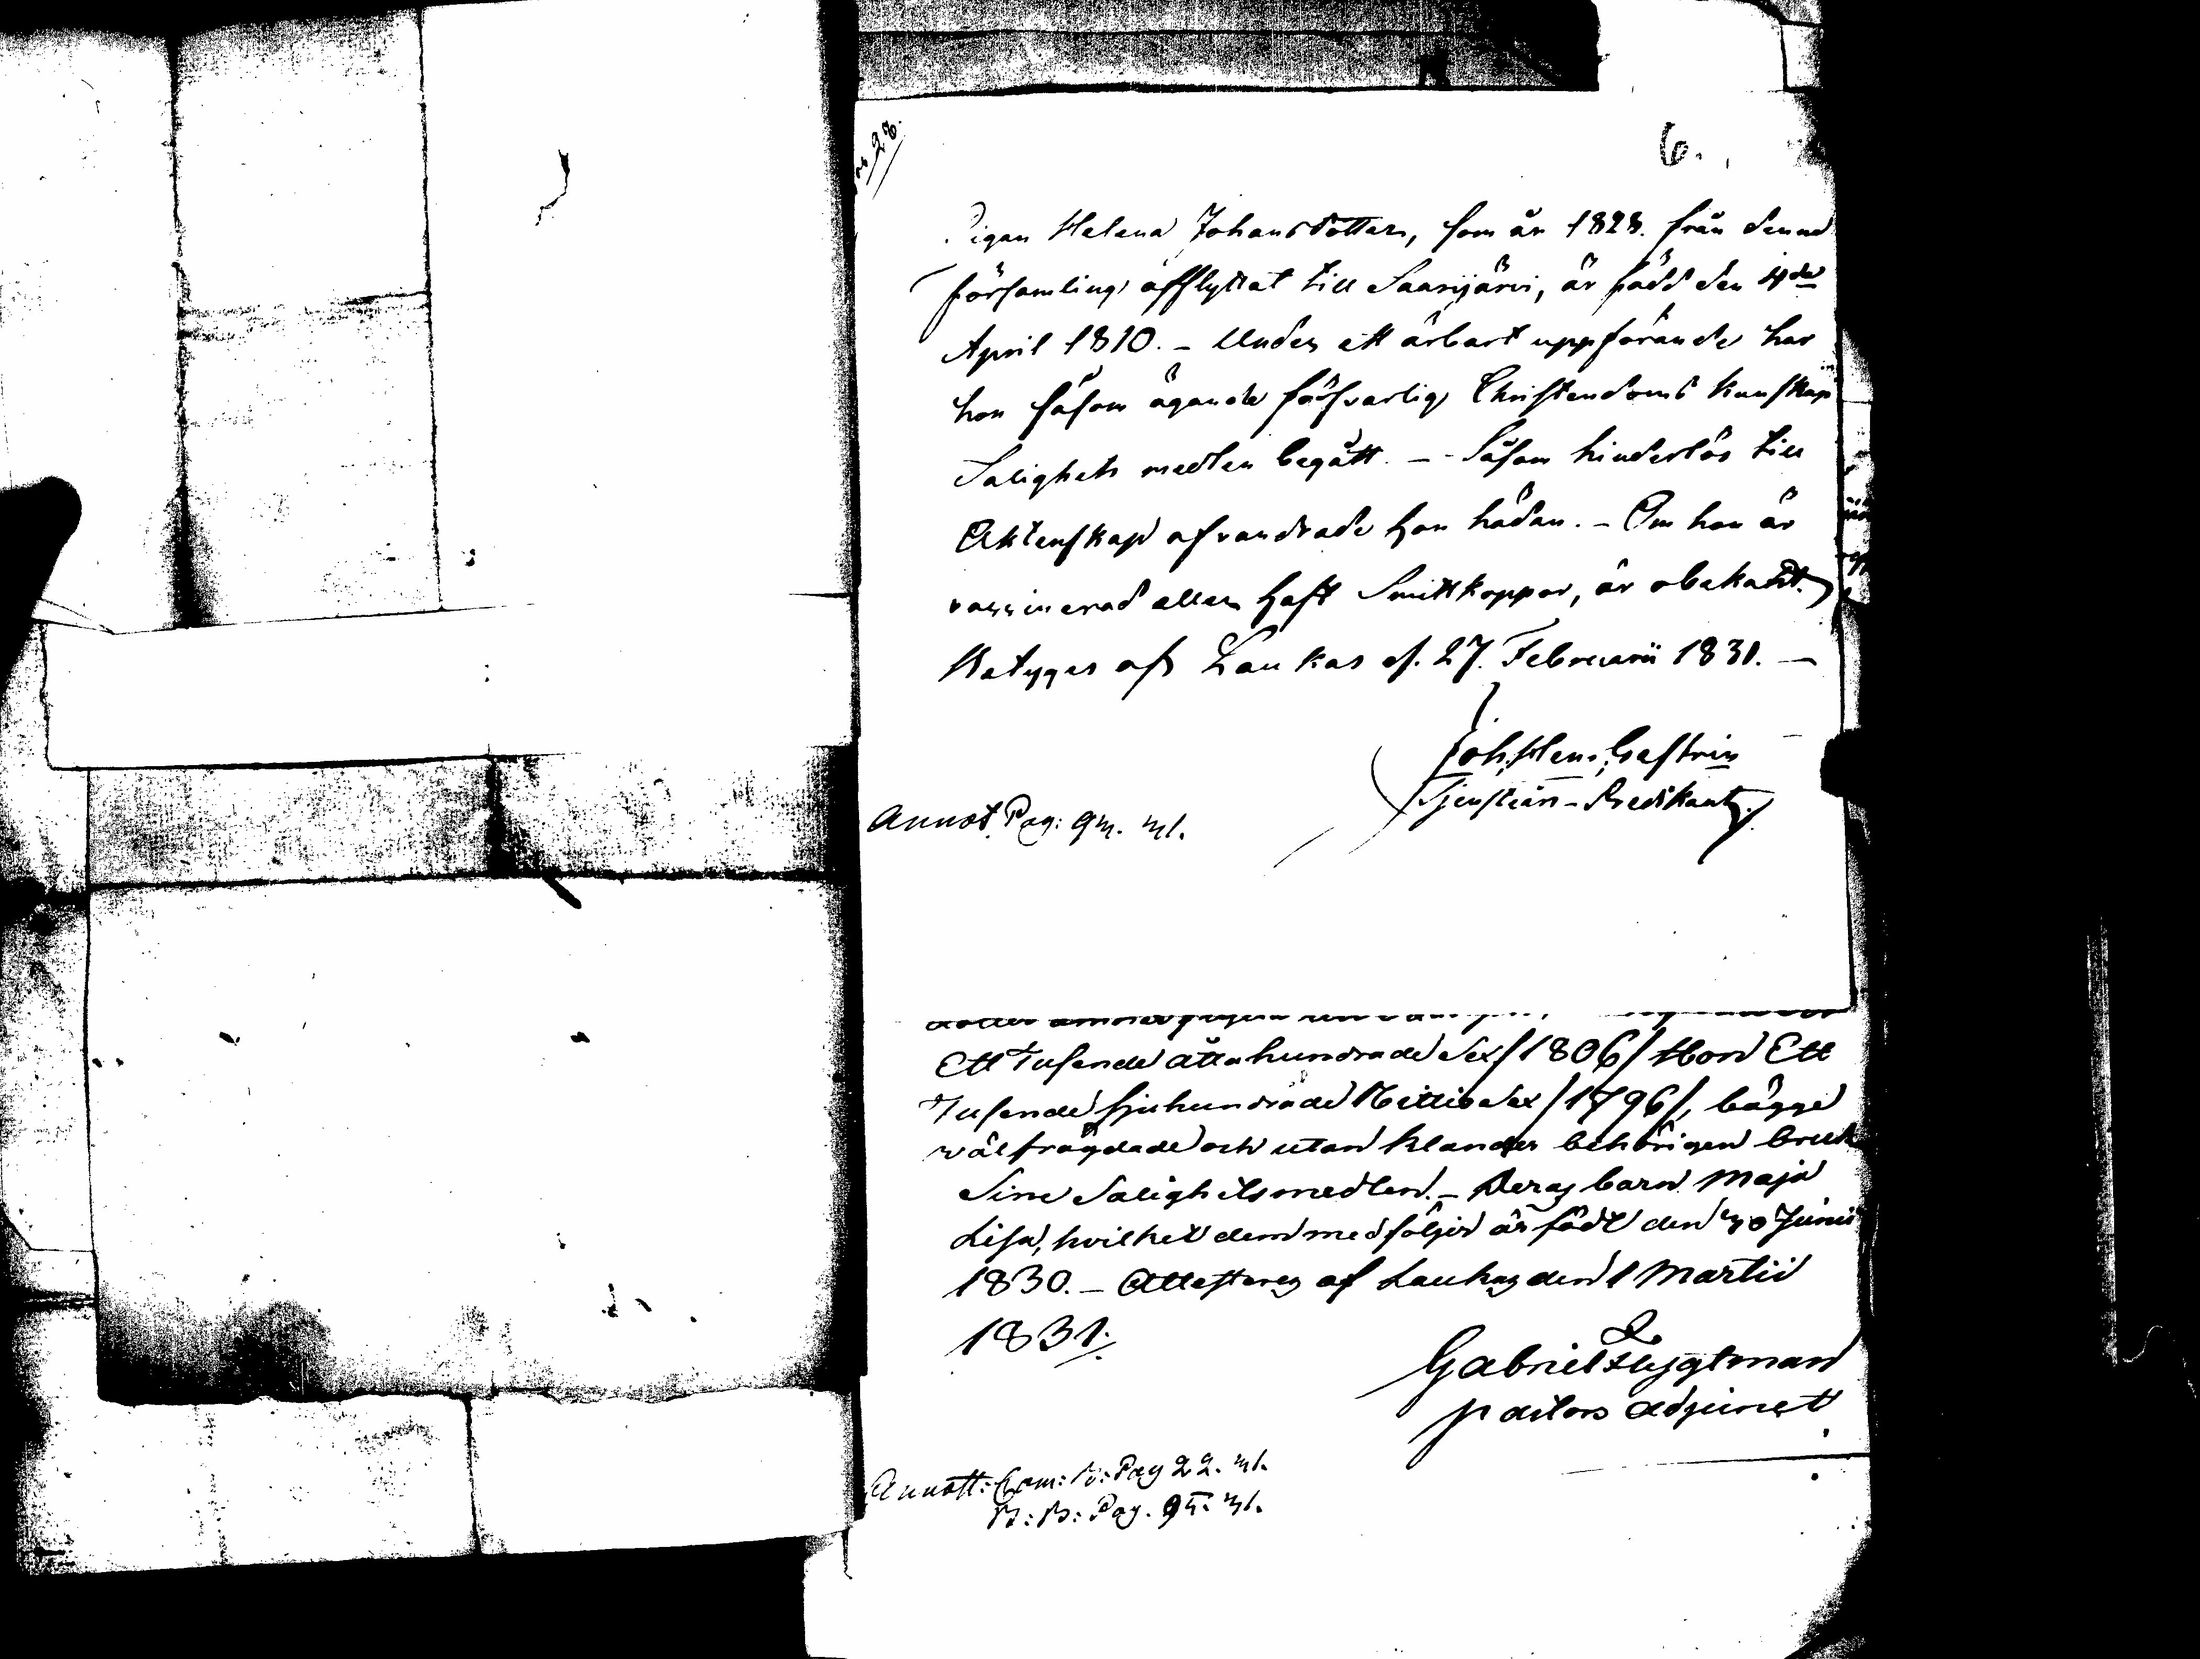 No 28.
6.
Pigan Helena Johansdotter, som år 1828. från denna
församling afflyttat till Saarijärvi, är född den 4de
April 1810. – Under ett ärbart uppförande har
hon såsom ägande försvarlig Christendoms kunskap
Salighets medlen begått. – Såsom hinderlös till
Äktenskap afvandrade hon hädan. – Om hon är
vaccinerad eller haft Smittkoppor, är obekant.
Betygas af Laukas d. 27. Februarii 1831. –
Joh. Henr. Gastrin
Tjenstgör. Predikant.
Annot. Pag: 93. 31.
Ett Tusende åttahundrade Sex /1806/ Hon Ett
Tusende Sjuhundrade Nittio Sex /1796/, bägge
wälfrägdade och utan klander behörigen bruk
Sine Salighetsmedlen. – Deras barn Maja
Lisa, hvilket dem medföljer är född den 30 Junii
1830. – Attesteras af Laukas den 1 Martii
1831.
Gabriel Flygtman
pastors adjunct
Annott: Com: B: Pag 22. 31.
B: B: Pag. 95. 31.